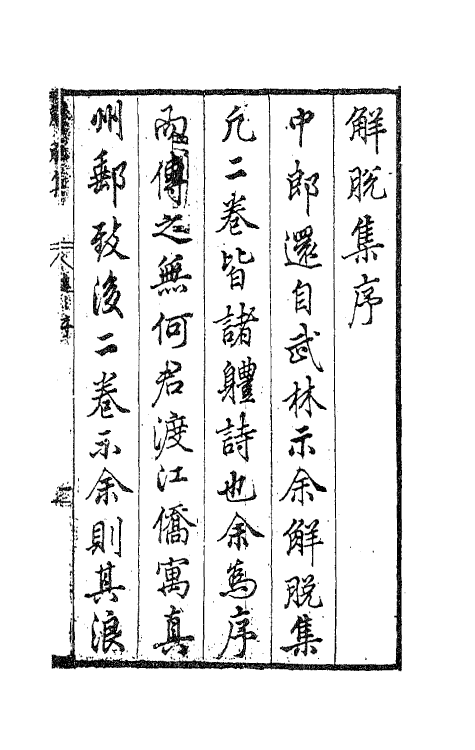 解脫集序
中郎還自武林示余解脫集
凢二卷皆諸軆詩也余爲序
而傳之無何君渡江僑寓真
州郵致後二卷示余則其浪